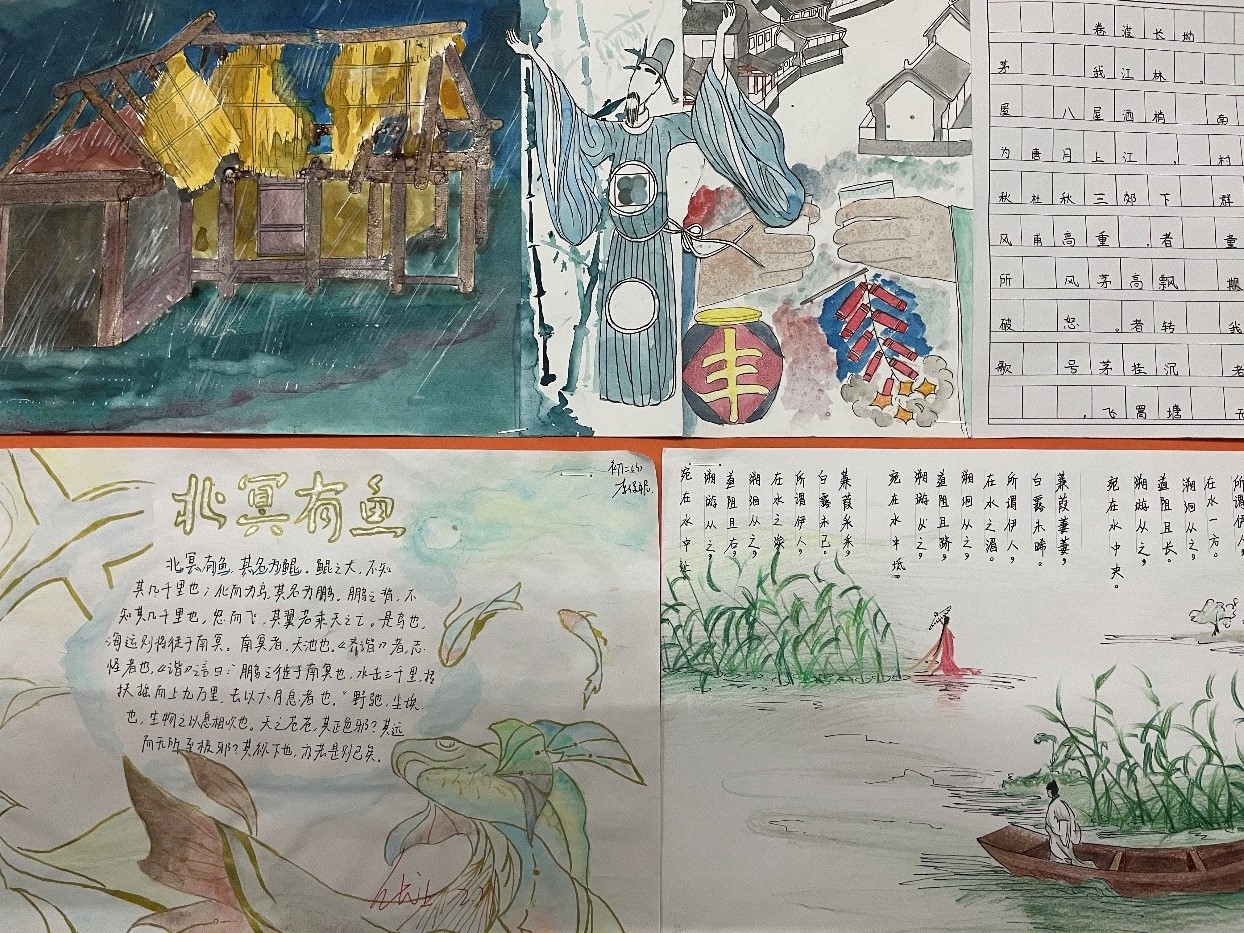 茅屋为秋风所破歌
唐杜甫
八月秋高风怒号，
卷我屋上三重茅。茅飞
渡江洒江郊，高者挂罥
长林梢，下者飘转沉塘
坳。
南村群童欺我老无
丰
北冥有鱼
北冥有鱼,其名为鲲。鲲之大,不知
其几千里也;化而为鸟,其名为鹏。鹏之背,不
知其几千里也,怒而飞,其翼若垂天之云。是鸟也,
海运则将徙于南冥。南冥者,天池也。《齐谐》者,志
怪者也。《谐》之言曰:“鹏之徙于南冥也,水击三千里,抟
扶摇而上九万里,去以六月息者也。”野马也,尘埃
也,生物之以息相吹也。天之苍苍,其正色邪?其远
而无所至极邪?其视下也,亦若是则已矣。
所谓伊人，
在水一方。
溯洄从之，
道阻且长。
溯游从之，
宛在水中央。
蒹葭萋萋，
白露未晞。
所谓伊人，
在水之湄。
溯洄从之，
道阻且跻。
溯游从之，
宛在水中坻。
蒹葭采采，
白露未已。
所谓伊人，
在水之涘。
溯洄从之，
道阻且右。
溯游从之，
宛在水中沚